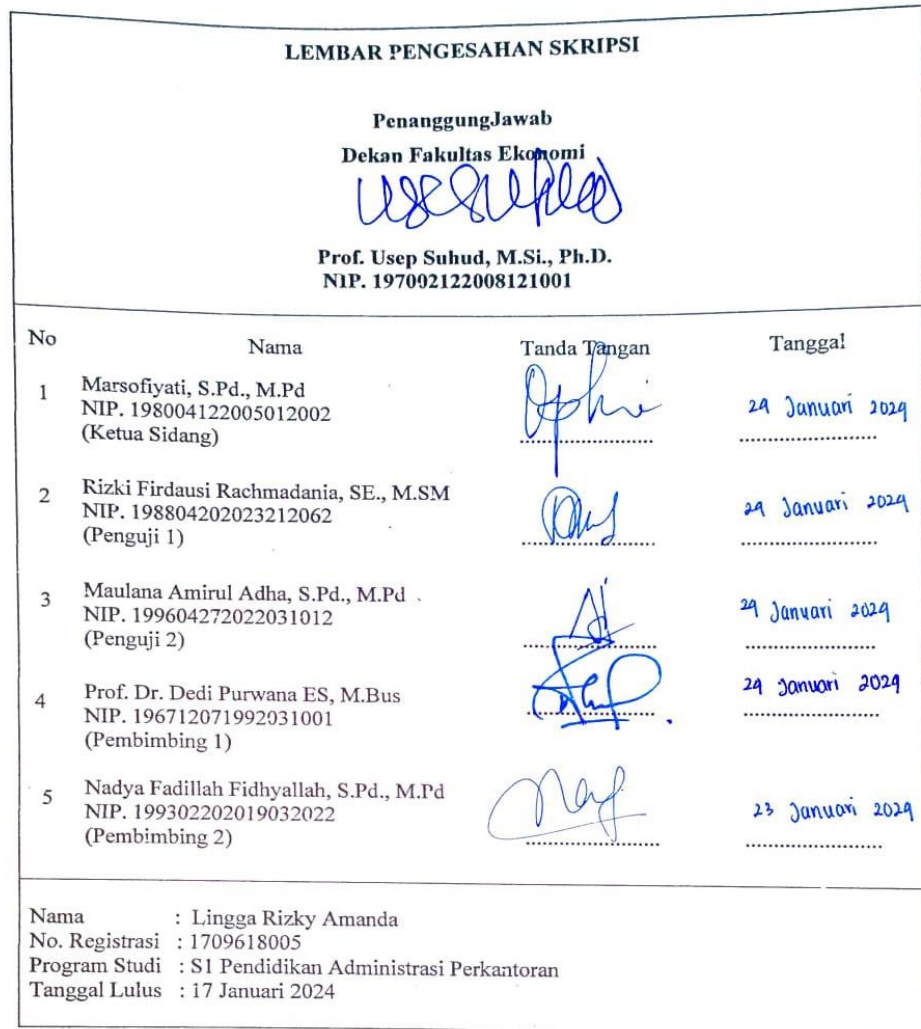 LEMBAR PENGESAHAN SKRIPSI
PenanggungJawab
Dekan Fakultas Ekonomi
Prof. Usep Suhud, M.Si., Ph.D.
NIP. 197002122008121001
No Nama Tanda Tangan Tanggal
1 Marsofiyati, S.Pd., M.Pd
NIP. 198004122005012002 24 Januari 2024
(Ketua Sidang)
2 Rizki Firdausi Rachmadania, SE., M.SM
NIP. 198804202023212062 24 Januari 2024
(Penguji 1)
3 Maulana Amirul Adha, S.Pd., M.Pd
NIP. 199604272022031012 24 Januari 2024
(Penguji 2)
4 Prof. Dr. Dedi Purwana ES, M.Bus 24 Januari 2024
NIP. 196712071992031001
(Pembimbing 1)
5 Nadya Fadillah Fidhyallah, S.Pd., M.Pd
NIP. 199302202019032022 23 Januari 2024
(Pembimbing 2)
Nama : Lingga Rizky Amanda
No. Registrasi : 1709618005
Program Studi : S1 Pendidikan Administrasi Perkantoran
Tanggal Lulus : 17 Januari 2024